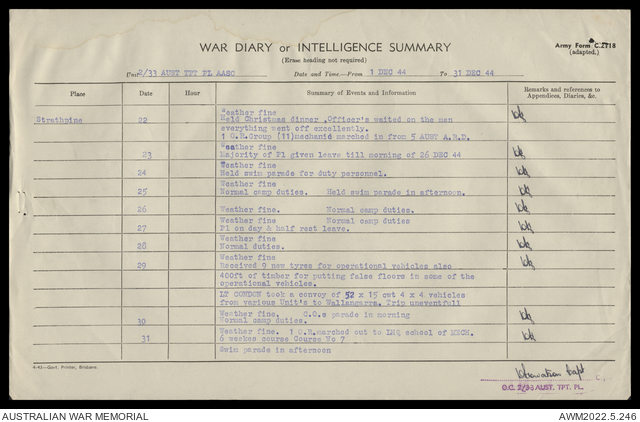 WAR DIARY or INTELLIGENCE SUMMARY
Army Form C.2118
(Erase heading not required)
(adapted).
Unit 2/33 AUST TPT PL AASC Date and Time—From 1 DEC 44 To 31 DEC 44
Place Date Hour Summary of Events and Information Remarks and references to
Appendices, Diaries, &c.
Strathpine 22 Weather fine
Held Christmas dinner .Officer's waited on the men
everything went off excellently.
1 O.R.Group (11)mechanic marched in from 5 AUST A.R.D.
23 Weather fine
Majority of Pl given leave till morning of 26 DEC 44
24 Weather fine
Held swim parade for duty personnel.
25 Weather fine
Normal camp duties. Held swim parade in afternoon.
26 Weather fine. Normal camp duties.
27 Weather fine Normal camp duties
Pl on day & half rest leave.
28 Weather fine
Normal duties.
29 Weather fine
Received 9 new tyres for operational vehicles also
400ft of timber for putting false floors in some of the
operational vehicles.
LT CONDON took a convoy of 52 x 15 cwt 4 x 4 vehicles
from various Unit's to Wallangarra. Trip uneventfull
30 Weather fine. C.O.s parade in morning
Normal camp duties.
31 Weather fine. 1 O.R.marched out to LHQ school of MECH.
6 weekes course Course No 7
Swim parade in afternoon
4-43—Govt. Printer, Brisbane.
Capt
O.C. 2/33 AUST. TPT. PL.
AUSTRALIAN WAR MEMORIAL AWM2022.5.246